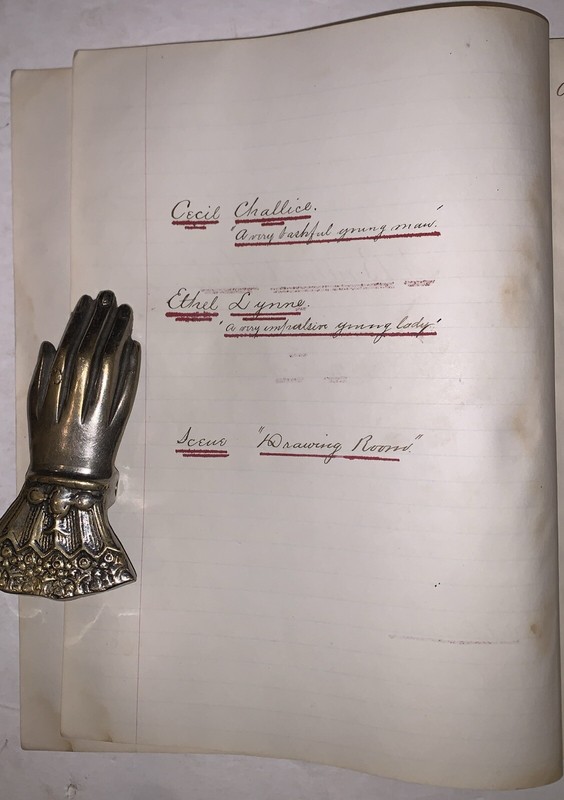 Cecil Challice.
"A very bashful young man."
Ethel Lynne.
"A very impulsive young lady."
Scene "Drawing Room".